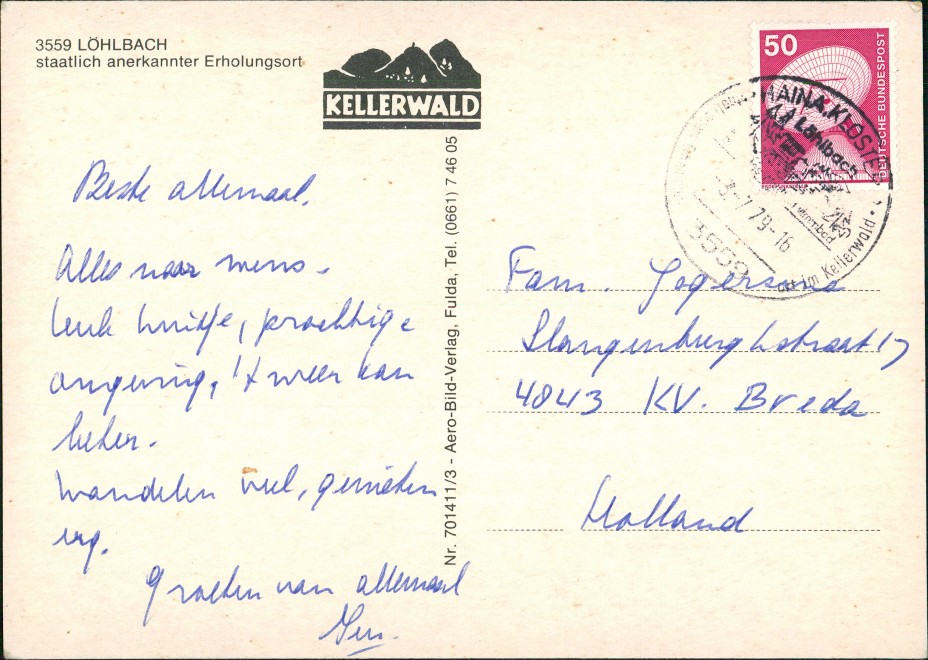 3559 LÖHLBACH
staatlich anerkannter Erholungsort
KELLERWALD
Beste allemaal,
Alles naar wens.
Leuk huisje, prachtige
omgeving, 't weer kan
beter.
Wandelen veel, genieten
erg.
Groeten van allemaal
Nr. 701411/3 - Aero-Bild-Verlag, Fulda, Tel. (0661) 7 46 05
50
DEUTSCHE BUNDESPOST
HAINA, KLOSTER
Löhlbach
79-16
3559
im Kellerwald
Fam.
Slangenburghstraat 17
4843 KV. Breda
Holland